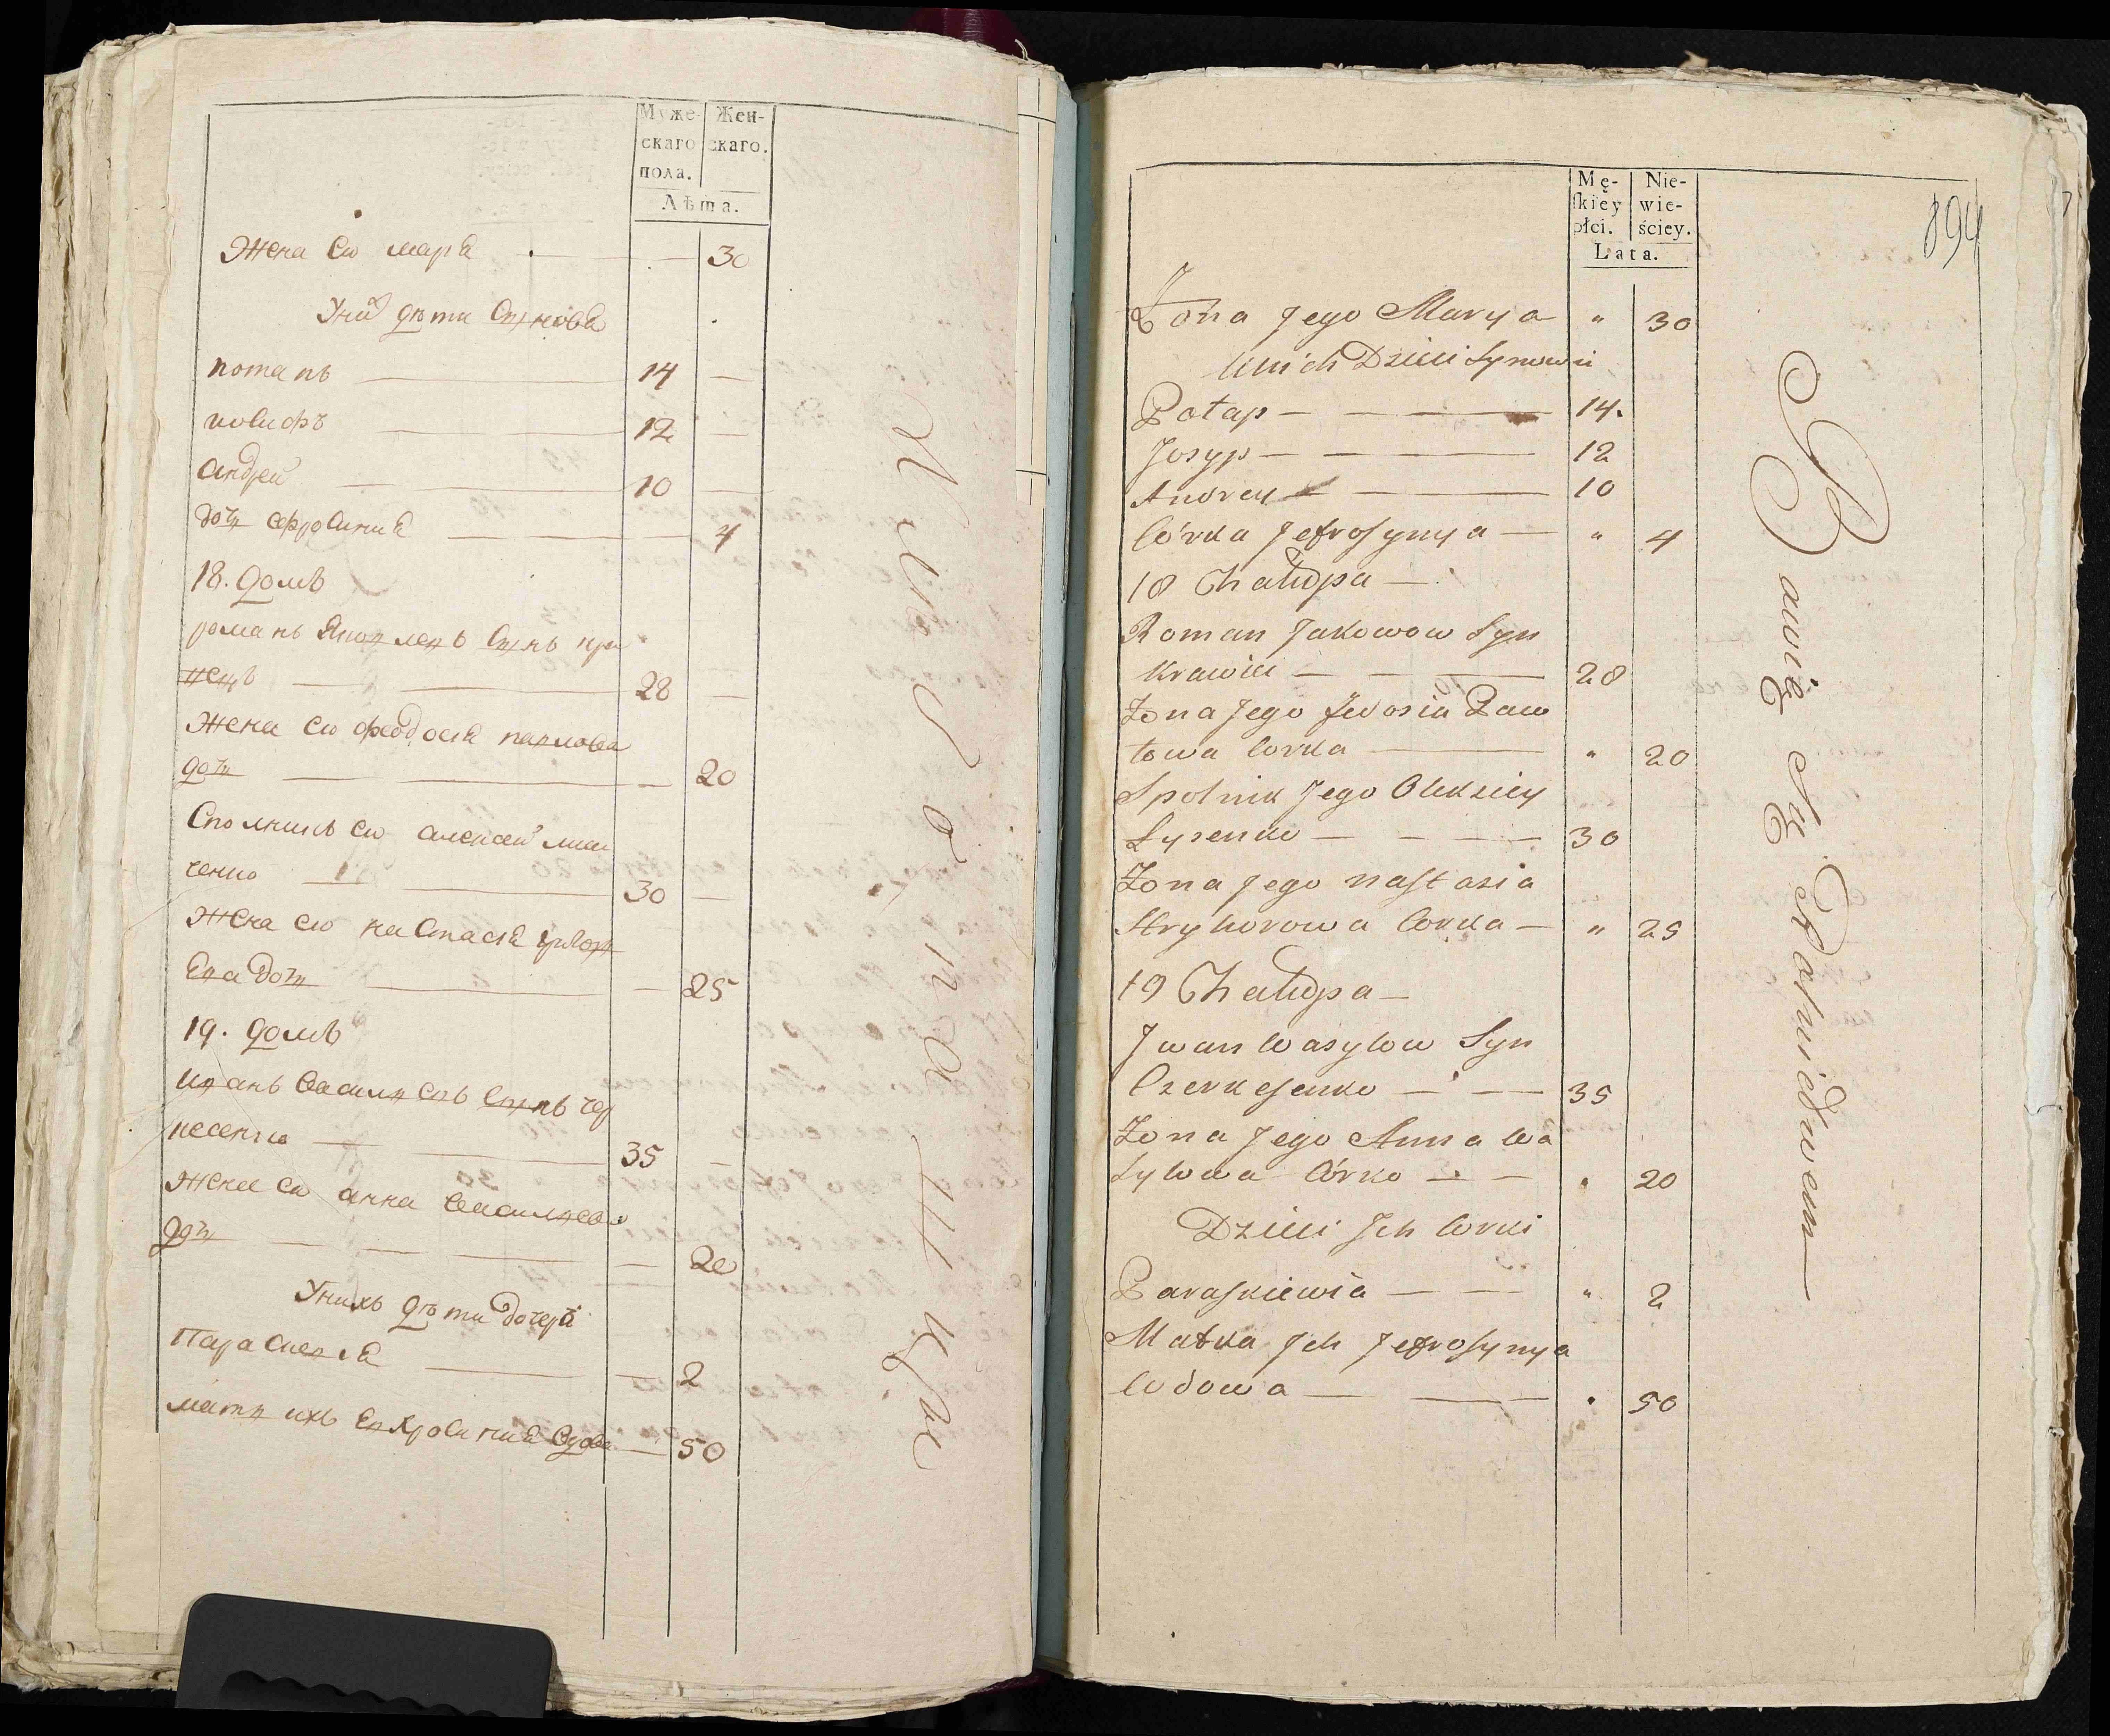 Муже-
скаго
пола.
Жен-
скаго.
Лѣта.
Жена ево марѣ 30
У них дѣти Сыновя
потапъ 14
иосифъ 12
андрей 10
дочь ефросиния 4
18. домъ
романъ Яковлевъ Сынъ кра
вецъ 28
Жена ево феодосия павлова
дочь 20
Сполникъ ево алексей лисе
ченко 30
Жена ево настасия григорь
ева дочь 25
19. домъ
иванъ Васильевъ Сынъ чер
кесенко 35
Жена ево анна Васильева
дочь 20
У нихъ дѣти дочери
Параскевия 2
мать ихъ Евфросиния Вдова 50
Mę-
skiey
płci.
Nie-
wie-
ściey.
Lata.
894
Żona Jego Marya " 30
U nich Dzieci Synowie
Potap 14.
Josyp 12
Andrey 10
Córka Jefrosynya " 4
18 Chałupa
Roman Jakowow Syn
Krawiec 28
Żona Jego Fedosia Paw
łowa Corka " 20
Spolnik Jego Olexiey
Łysenko 30
Żona Jego Nastasia
Hryhorowa Corka " 25
19 Chałupa
Jwan Wasylow Syn
Czerkesenko 35
Żona Jego Anna Wa
sylowa Córka " 20
Dzieci Jch Corki
Paraskiewia " 2
Matka Jch Jefrosynya
Wdowa " 50
Bawią się Rolnictwem